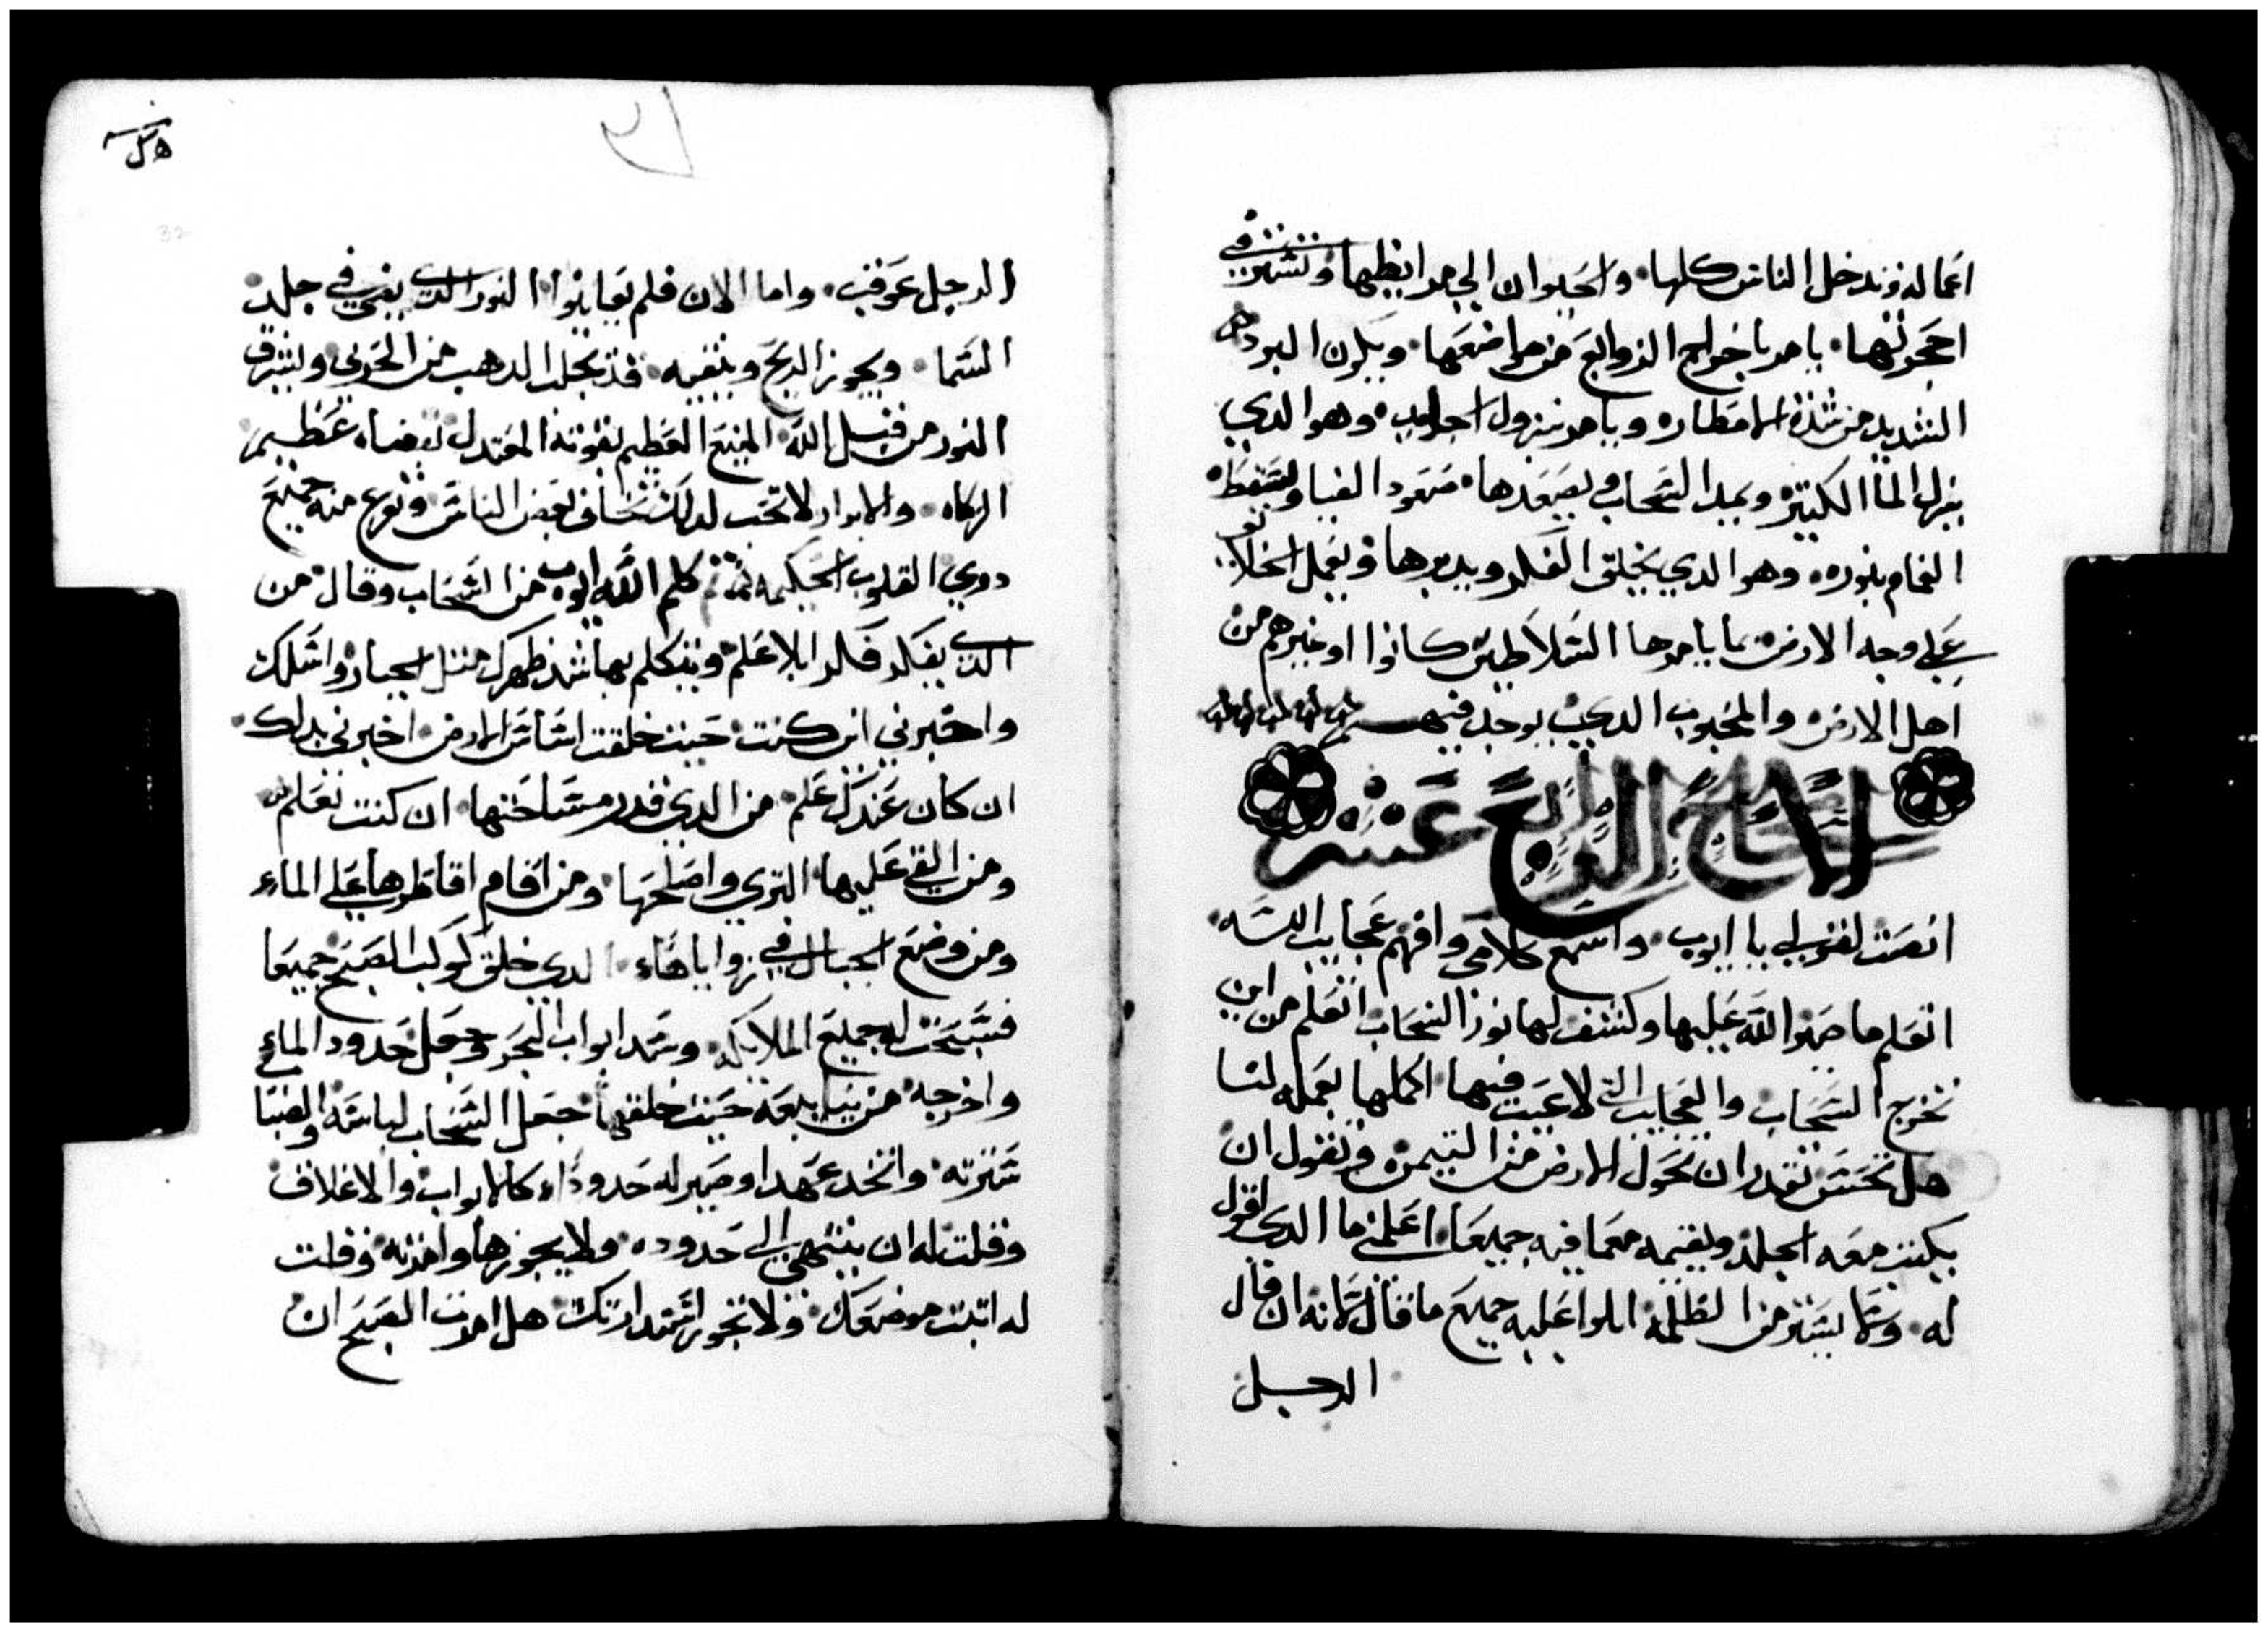 اعماله وتدخل الناس كلها والحيوان الي مرابطها وتستقر في
احجرتها يامر باخراج الزوابع من مواضعها ويكون البرد
الشديد من شدة الامطار ويامر بنزول الجليد وهو الدي
ينزل الما الكتير ويمد السحاب يصعدها صعود الضيا
الغمام بنوره وهو الدي يخلق الفلك ويدبرها ويعمل
علي وجه الارض بما يامرها السلاطين كانوا او غيرهم من
اهل الارض والمحبوب الدي يوجد فيهم
الاصحاح الرابع عشر
انصت لقولي يا ايوب واسمع كلامي وافهم عجايب الله
اتعلم ما صير الله عليها وكشف لها نور السحاب اتعلم من اين
تخرج السحاب والعجايب التي لا عيب فيها اكملها بعمله لنا
هل تحسن تقدر ان تحول الارض من التيمن وتقول ان
يكبت معه الجلد ويقيمه معما فيه جميعا اعلمني ما الدي اقول
له وما يستر من الظلمة املوا عليه جميع ما قال لانه ان قال
الرجل
الرجل عوقب واما الان فلم يعاينوا النور الدي يضي في جلد
السما ويجوز الريح وينقيه قد تجلب الدهب من الحربي ويشرق
النور من قبل الله المنيع العظيم بقوته المعتدل بقضاه عظيم
الزكاه والابرار لا تجب لدلك تخاف بعض الناس وتفزع منه جميع
دوي القلوب الحكيمه ثم كلم الله ايوب من السحاب وقال من
الدي يفكر فكرا بلا علم ويتكلم بها شد ظهرك متل الجبار واسلك
واخبرني اين كنت حيت خلقت اساس الارض اخبرني بدلك
ان كان عندك علم من الدي قدر مساحتها ان كنت تعلم
ومن القي عليها التري واصلحها ومن اقام اقاطرها علي الماء
ومن وضع الجبال في زواياها الدي خلق كوكب الصبح جميعا
فسبحت له جميع الملايكه وسد ابواب البحر وجعل حدود الماء
واخرجه من ينابيعه حيت خلقها جعل السحاب لباسه والضبا
سترته واتخد عهدا وصير له حدودا كالابواب والاغلاق
وقلت له ان ينتهي الي حدوده ولا يجوزها وامرته وقلت
له اتبت موضعك ولا تجوز مقدارتك هل امرت الصبح ان